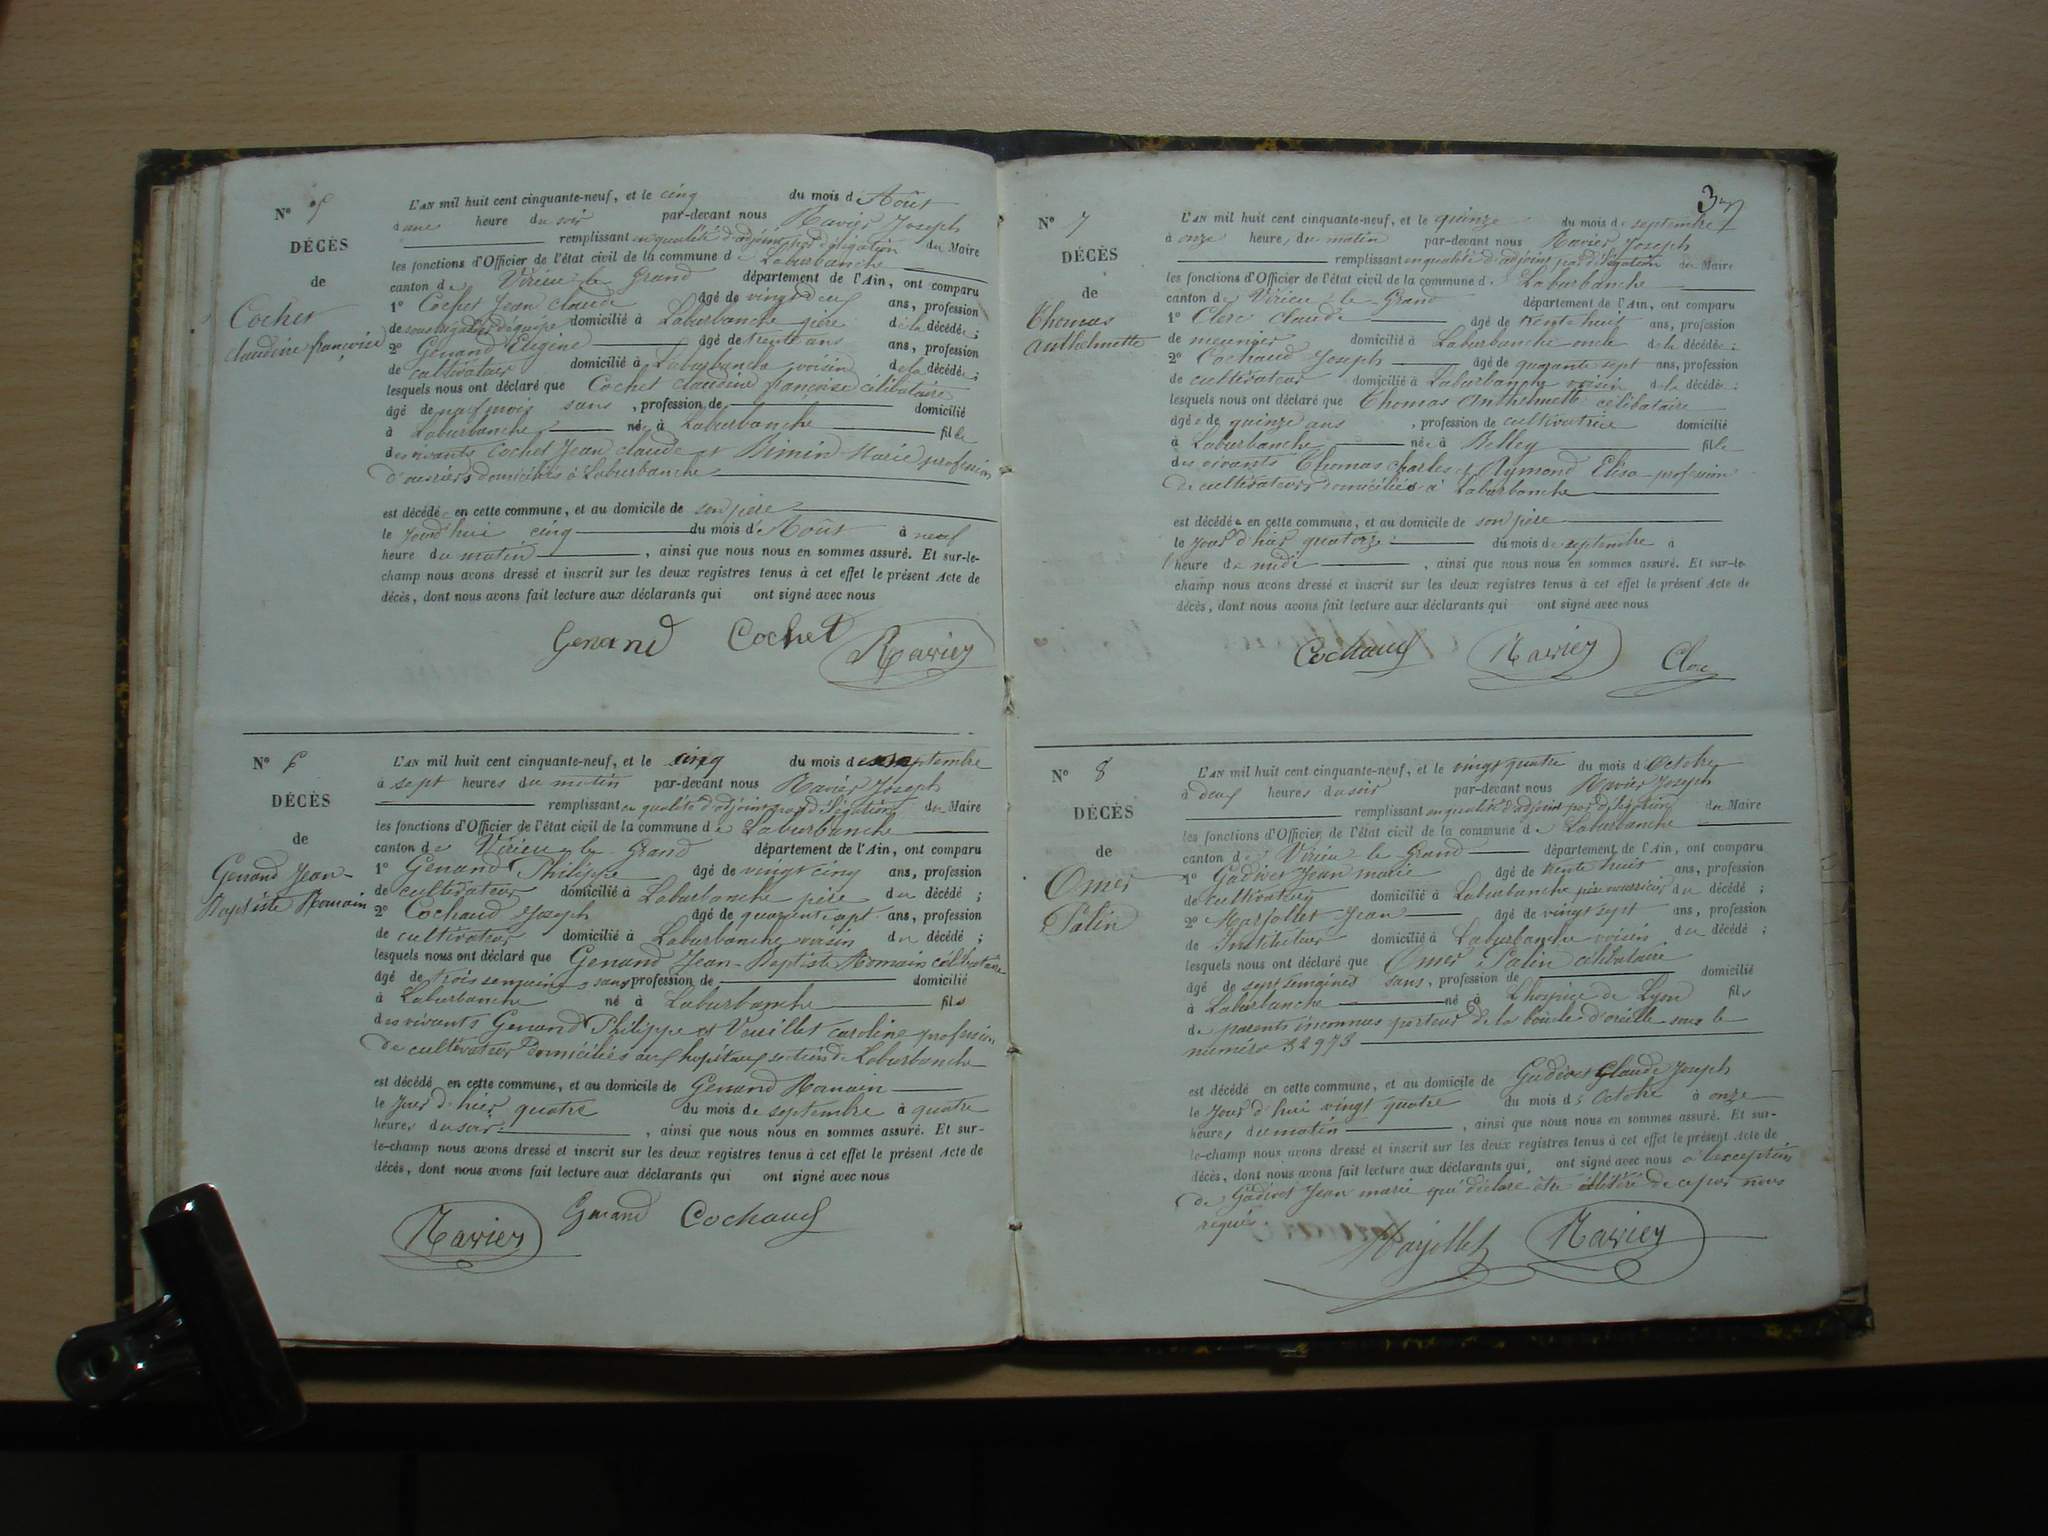 N° 5
DÉCÈS
de
Cochet
claudine françoise
L'AN mil huit cent cinquante-neuf, et le cinq du mois d'Août
à une heure du soir par-devant nous Ravier Joseph
remplissant en qualité d'adjoint par délégation du Maire
les fonctions d'Officier de l'état civil de la commune de Laburbanche
canton de Virieu le Grand département de l'Ain, ont comparu
1° Cochet Jean claude âgé de vingt deux ans, profession
de domicilié à Laburbanche père de la décédée ;
2° Genand Eugène âgé de trente ans ans, profession
de cultivateur domicilié à Laburbanche voisin de la décédée ;
lesquels nous ont déclaré que Cochet claudine françoise célibataire
âgé de neuf mois sans , profession de domicilié
à Laburbanche née à Laburbanche fille
des vivants Cochet Jean claude et Bimin Marie profession
d'ouvriers domiciliés à Laburbanche
est décédée en cette commune, et au domicile de son père
le jourd'hui cinq du mois d'Août à neuf
heure du matin , ainsi que nous nous en sommes assuré. Et sur-le-
champ nous avons dressé et inscrit sur les deux registres tenus à cet effet le présent Acte de
décès, dont nous avons fait lecture aux déclarants qui ont signé avec nous
Genand Cochet Ravier
N° 6
DÉCÈS
de
Genand Jean-
Baptiste Romain
L'AN mil huit cent cinquante-neuf, et le cinq du mois de septembre
à sept heures du matin par-devant nous Ravier Joseph
remplissant en qualité d'adjoint par délégation du Maire
les fonctions d'Officier de l'état civil de la commune de Laburbanche
canton de Virieu le Grand département de l'Ain, ont comparu
1° Genand Philippe âgé de vingt cinq ans, profession
de cultivateur domicilié à Laburbanche père du décédé ;
2° Cochaud Joseph âgé de quarante sept ans, profession
de cultivateur domicilié à Laburbanche voisin du décédé ;
lesquels nous ont déclaré que Genand Jean-Baptiste Romain célibataire
âgé de trois semaines sans profession de domicilié
à Laburbanche né à Laburbanche fils
des vivants Genand Philippe et Vuillet caroline profession
de cultivateur domiciliés aux hopitaux section de Laburbanche
est décédé en cette commune, et au domicile de Genand Romain
le Jour d'hier quatre du mois de septembre à quatre
heures du soir , ainsi que nous nous en sommes assuré. Et sur-
le-champ nous avons dressé et inscrit sur les deux registres tenus à cet effet le présent Acte de
décès, dont nous avons fait lecture aux déclarants qui ont signé avec nous
Ravier Genand Cochaud
37
N° 7
DÉCÈS
de
Thomas
Anthelmette
L'AN mil huit cent cinquante-neuf, et le quinze du mois de septembre
à onze heures du matin par-devant nous Ravier Joseph
remplissant en qualité d'adjoint par délégation du Maire
les fonctions d'Officier de l'état civil de la commune de Laburbanche
canton de Virieu le Grand département de l'Ain, ont comparu
1° Clerc claude âgé de trente huit ans, profession
de meunier domicilié à Laburbanche oncle de la décédée ;
2° Cochaud Joseph âgé de quarante sept ans, profession
de cultivateur domicilié à Laburbanche voisin de la décédée ;
lesquels nous ont déclaré que Thomas Anthelmette célibataire
âgée de quinze ans , profession de cultivatrice domicilié
à Laburbanche née à Belley fille
des vivants Thomas charles et Aymond Elisa profession
de cultivateurs domiciliés à Laburbanche
est décédée en cette commune, et au domicile de son père
le jour d'hier quatorze du mois de septembre à
heure de midi , ainsi que nous nous en sommes assuré. Et sur-le-
champ nous avons dressé et inscrit sur les deux registres tenus à cet effet le présent Acte de
décès, dont nous avons fait lecture aux déclarants qui ont signé avec nous
Cochaud Ravier Clerc
N° 8
DÉCÈS
de
Omer
Palin
L'AN mil huit cent cinquante-neuf, et le vingt quatre du mois d'Octobre
à deux heures du soir par-devant nous Ravier Joseph
remplissant en qualité d'adjoint par délégation du Maire
les fonctions d'Officier de l'état civil de la commune de Laburbanche
canton de Virieu le Grand département de l'Ain, ont comparu
1° Gadivet Jean marie âgé de trente huit ans, profession
de cultivateur domicilié à Laburbanche père nourricier du décédé ;
2° Marjollet Jean âgé de vingt sept ans, profession
de Instituteur domicilié à Laburbanche voisin du décédé ;
lesquels nous ont déclaré que Omer Palin célibataire
âgé de sept semaines sans, profession de domicilié
à Laburbanche né à L'hospice de Lyon fils
de parents inconnus porteur de la boucle d'oreille sous le
numéro 32973
est décédé en cette commune, et au domicile de Gadivet Claude Joseph
le Jour d'hui vingt quatre du mois d'Octobre à onze
heures du matin , ainsi que nous nous en sommes assuré. Et sur-
le-champ nous avons dressé et inscrit sur les deux registres tenus à cet effet le présent Acte de
décès, dont nous avons fait lecture aux déclarants qui ont signé avec nous à l'exception
de Gadivet Jean marie qui déclare être illitéré de ce par nous
requis.
Marjollet Ravier